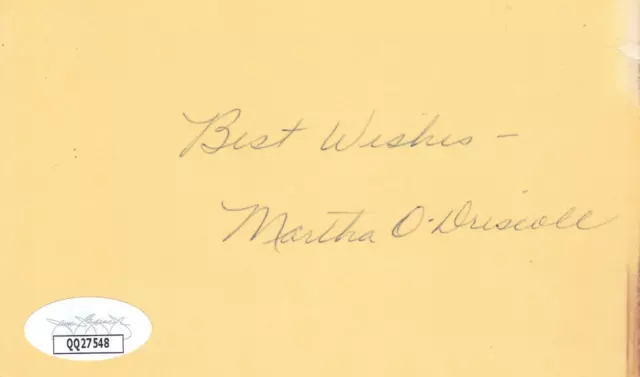 Best Wishes -
Martha O'Driscoll
QQ27548